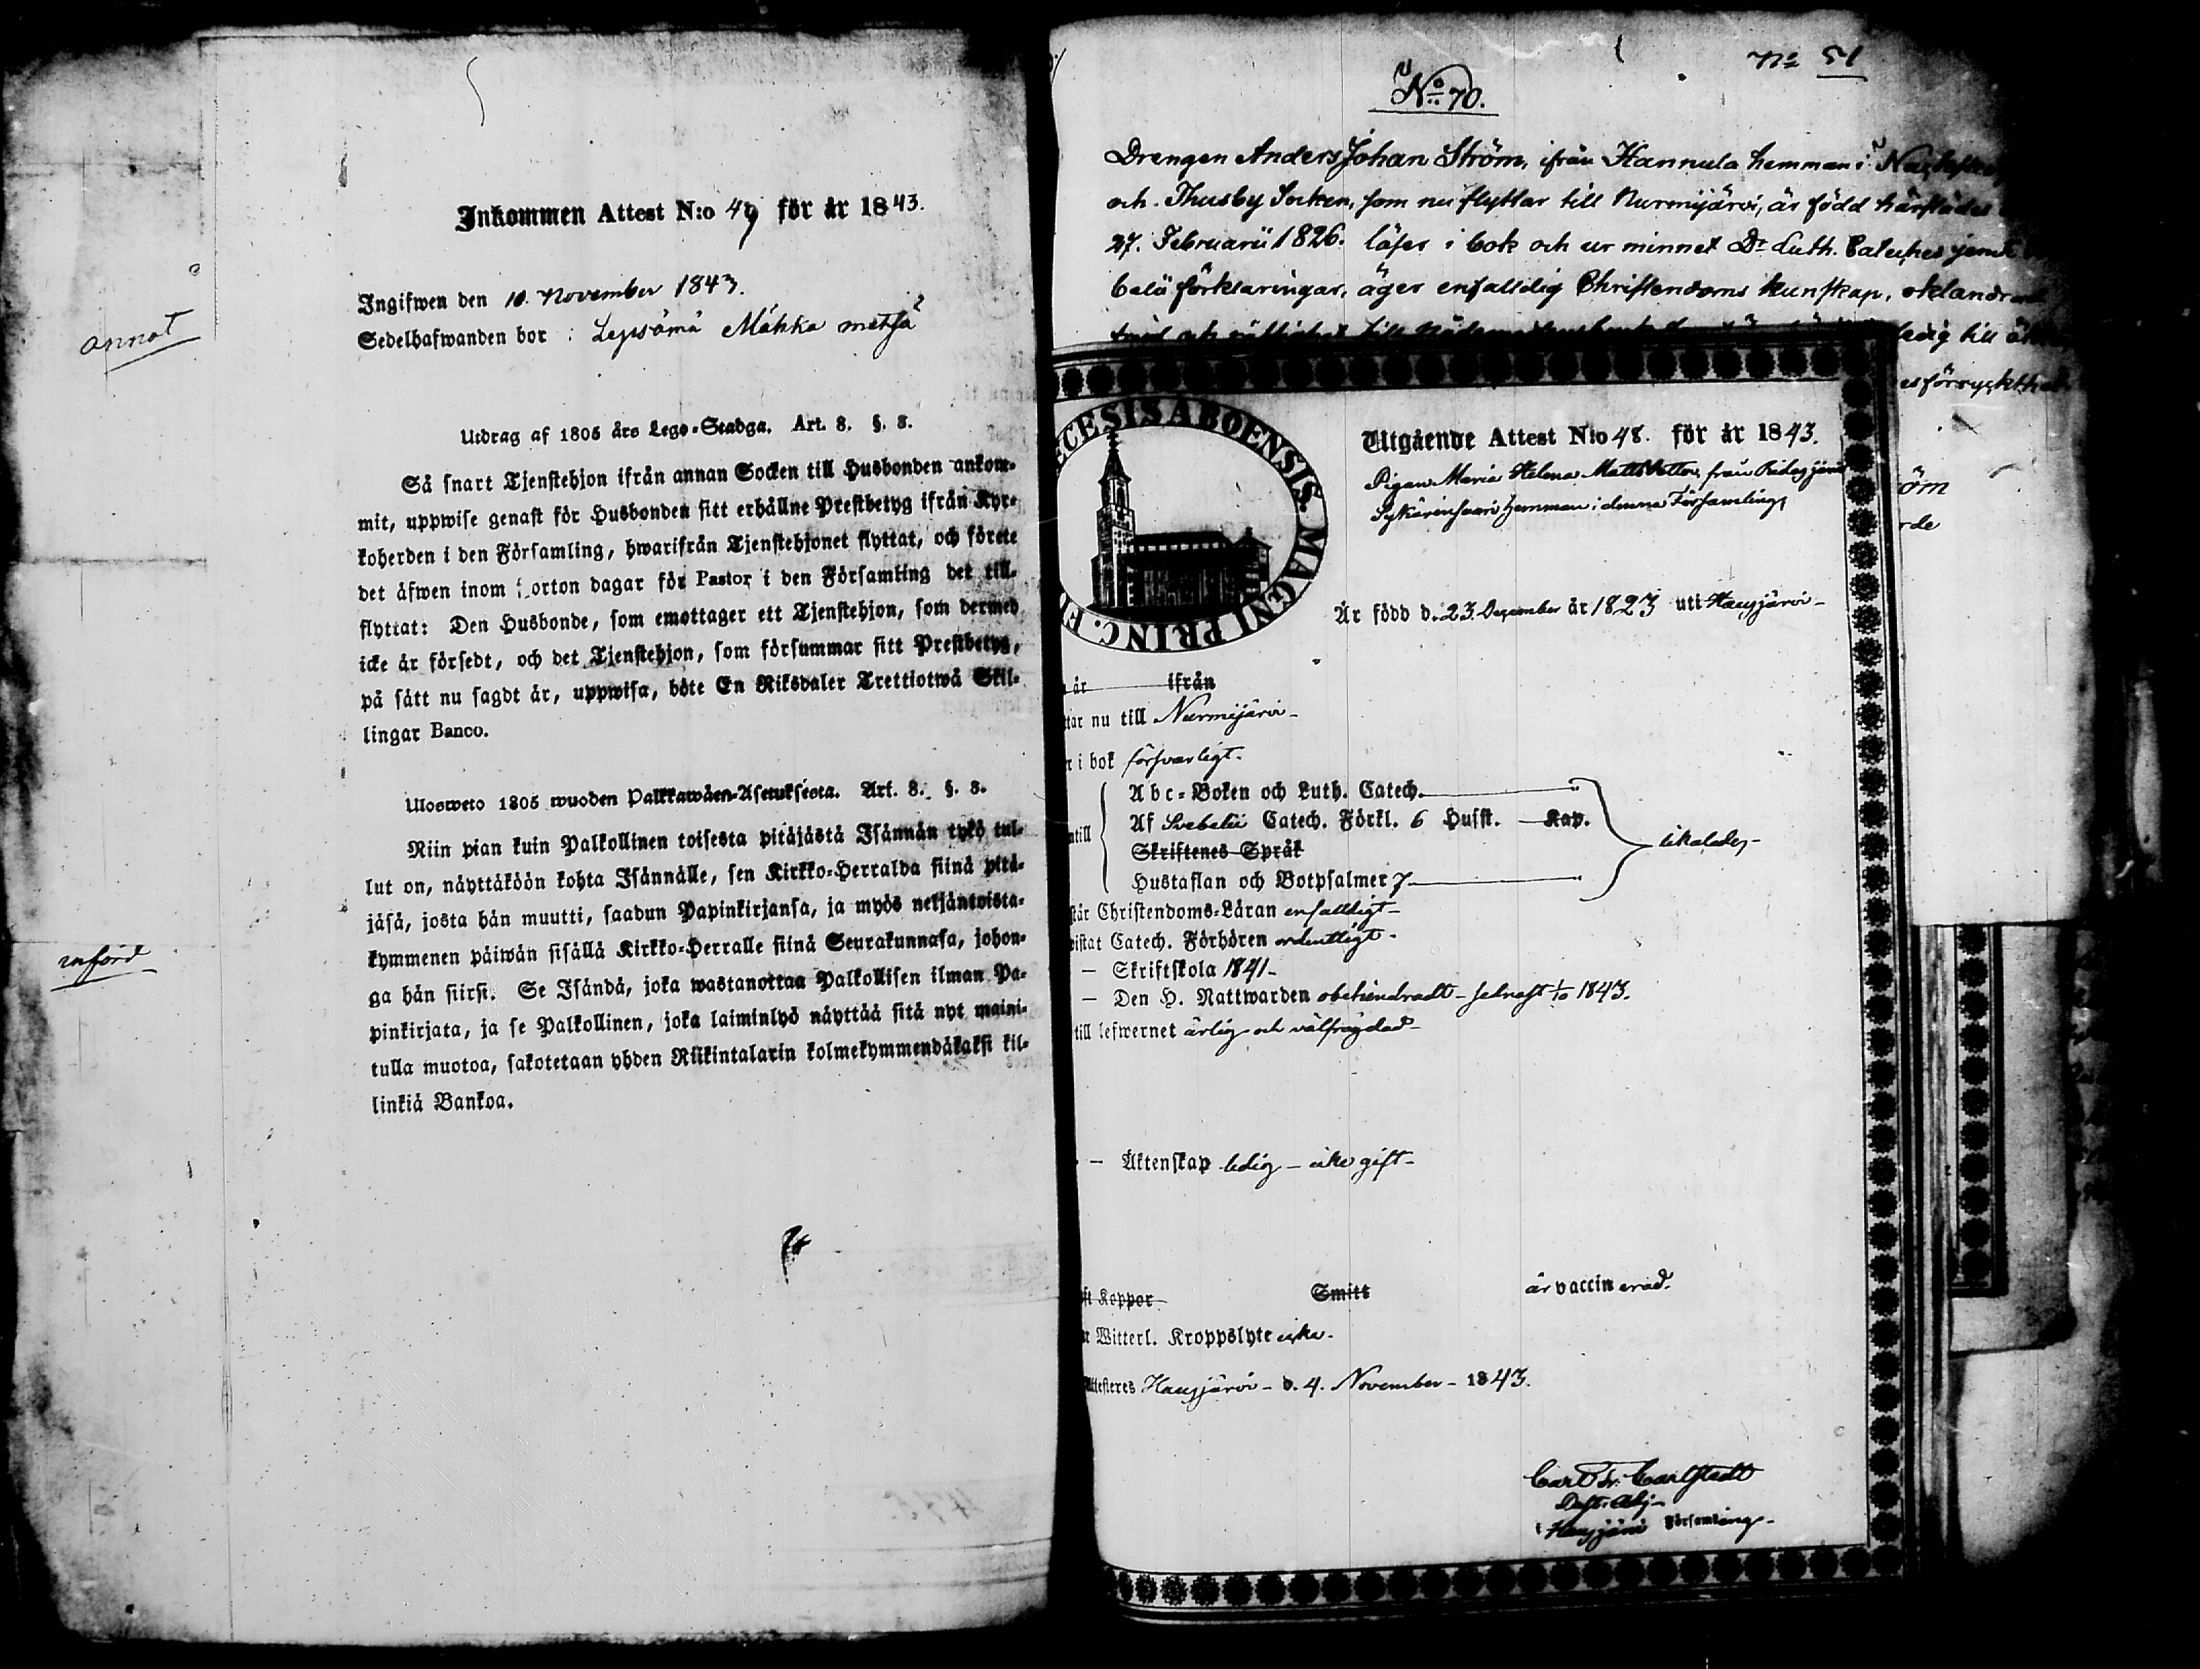 annot
införd
Inkommen Attest N:o 49 för år 1843.
Ingifwen den 10. November 1843.
Sedelhafwanden bor : Lepsämä Mähkä metsä
Utdrag af 1805 års Lego-Stadga. Art. 8. §. 8.
Så snart Tjenstehjon ifrån annan Socken till Husbonden ankom-
mit, uppwise genast för Husbonden sitt erhållne Prestbetyg ifrån Kyr-
koherden i den Församling, hwarifrån Tjenstehjonet flyttat, och förete
det äfwen inom orton dagar för Pastor i den Församling det till-
flyttat: Den Husbonde, som emottager ett Tjenstehjon, som dermed
icke är försedt, och det Tjenstehjon, som försummar sitt Prestbetyg,
på sätt nu sagdt är, uppwisa, böte En Riksdaler Trettiotwå Skil-
lingar Banco.
Uloswеto 1805 wuoden Palkkawäen-Asetuksesta. Art. 8. §. 8.
Niin pian kuin Palkollinen toisesta pitäjästä Isännän tykö tul-
lut on, näyttäköön kohta Isännälle, sen Kirkko-Herralda siinä pitä-
jäsä, josta hän muutti, saadun Papinkirjansa, ja myös neljäntoista-
kymmenen päiwän sisällä Kirkko-Herralle siinä Seurakunnasa, johon-
ga hän siirsi. Se Isändä, joka wastanottaa Palkollisen ilman Pa-
pinkirjata, ja se Palkollinen, joka laiminlyö näyttää sitä nyt maini-
tulla muotoa, sakotetaan yhden Riikintalarin kolmekymmendäkaksi kil-
linkiä Bankoa.
No 51
No 70.
Drengen Anders Johan Ström, ifrån Hannula hemman i
och Thusby Socken, som nu flyttar till Nurmijärvi, är född härstädes
27. Februarii 1826. läser i bok och ur minnet Dr Luth. Cateches jemte
förklaringar, äger enfalldig Christendoms kunskap, oklandrad
ledig till
öm
rde
ECESIS ABOENSIS. MAGNI PRINC. F
Utgående Attest N:o 48. för år 1843.
Pigan Maria Helena Matts dotter, från
hemman i denna Församling,
Är född d. 23 December år 1823 uti Hausjärvi -
år ifrån
ttar nu till Nurmijärvi -
r i bok försvarligt.
Abc-Boken och Luth. Catech.
ntill Af Svebelii Catech. Förkl. 6 Husst. Kap. likaledes -
Skriftenes Språk
Hustaflan och Botpsalmer 7
står Christendoms-Läran enfalldigt -
istat Catech. Förhören ordentligt -
- Skriftskola 1841 -
- Den H. Nattwarden obehindradt - sednast 1/10 1843.
till lefwernet ärlig och välfrägdad -
- Äktenskap ledig - icke gift -
ft Koppor Smitt är vaccinerad.
r Witterl. Kroppslyte icke -
Attesteres Hausjärvi - d. 4. November - 1843.
Carl Fr. Carlstedt
Hausjärvi Församling -